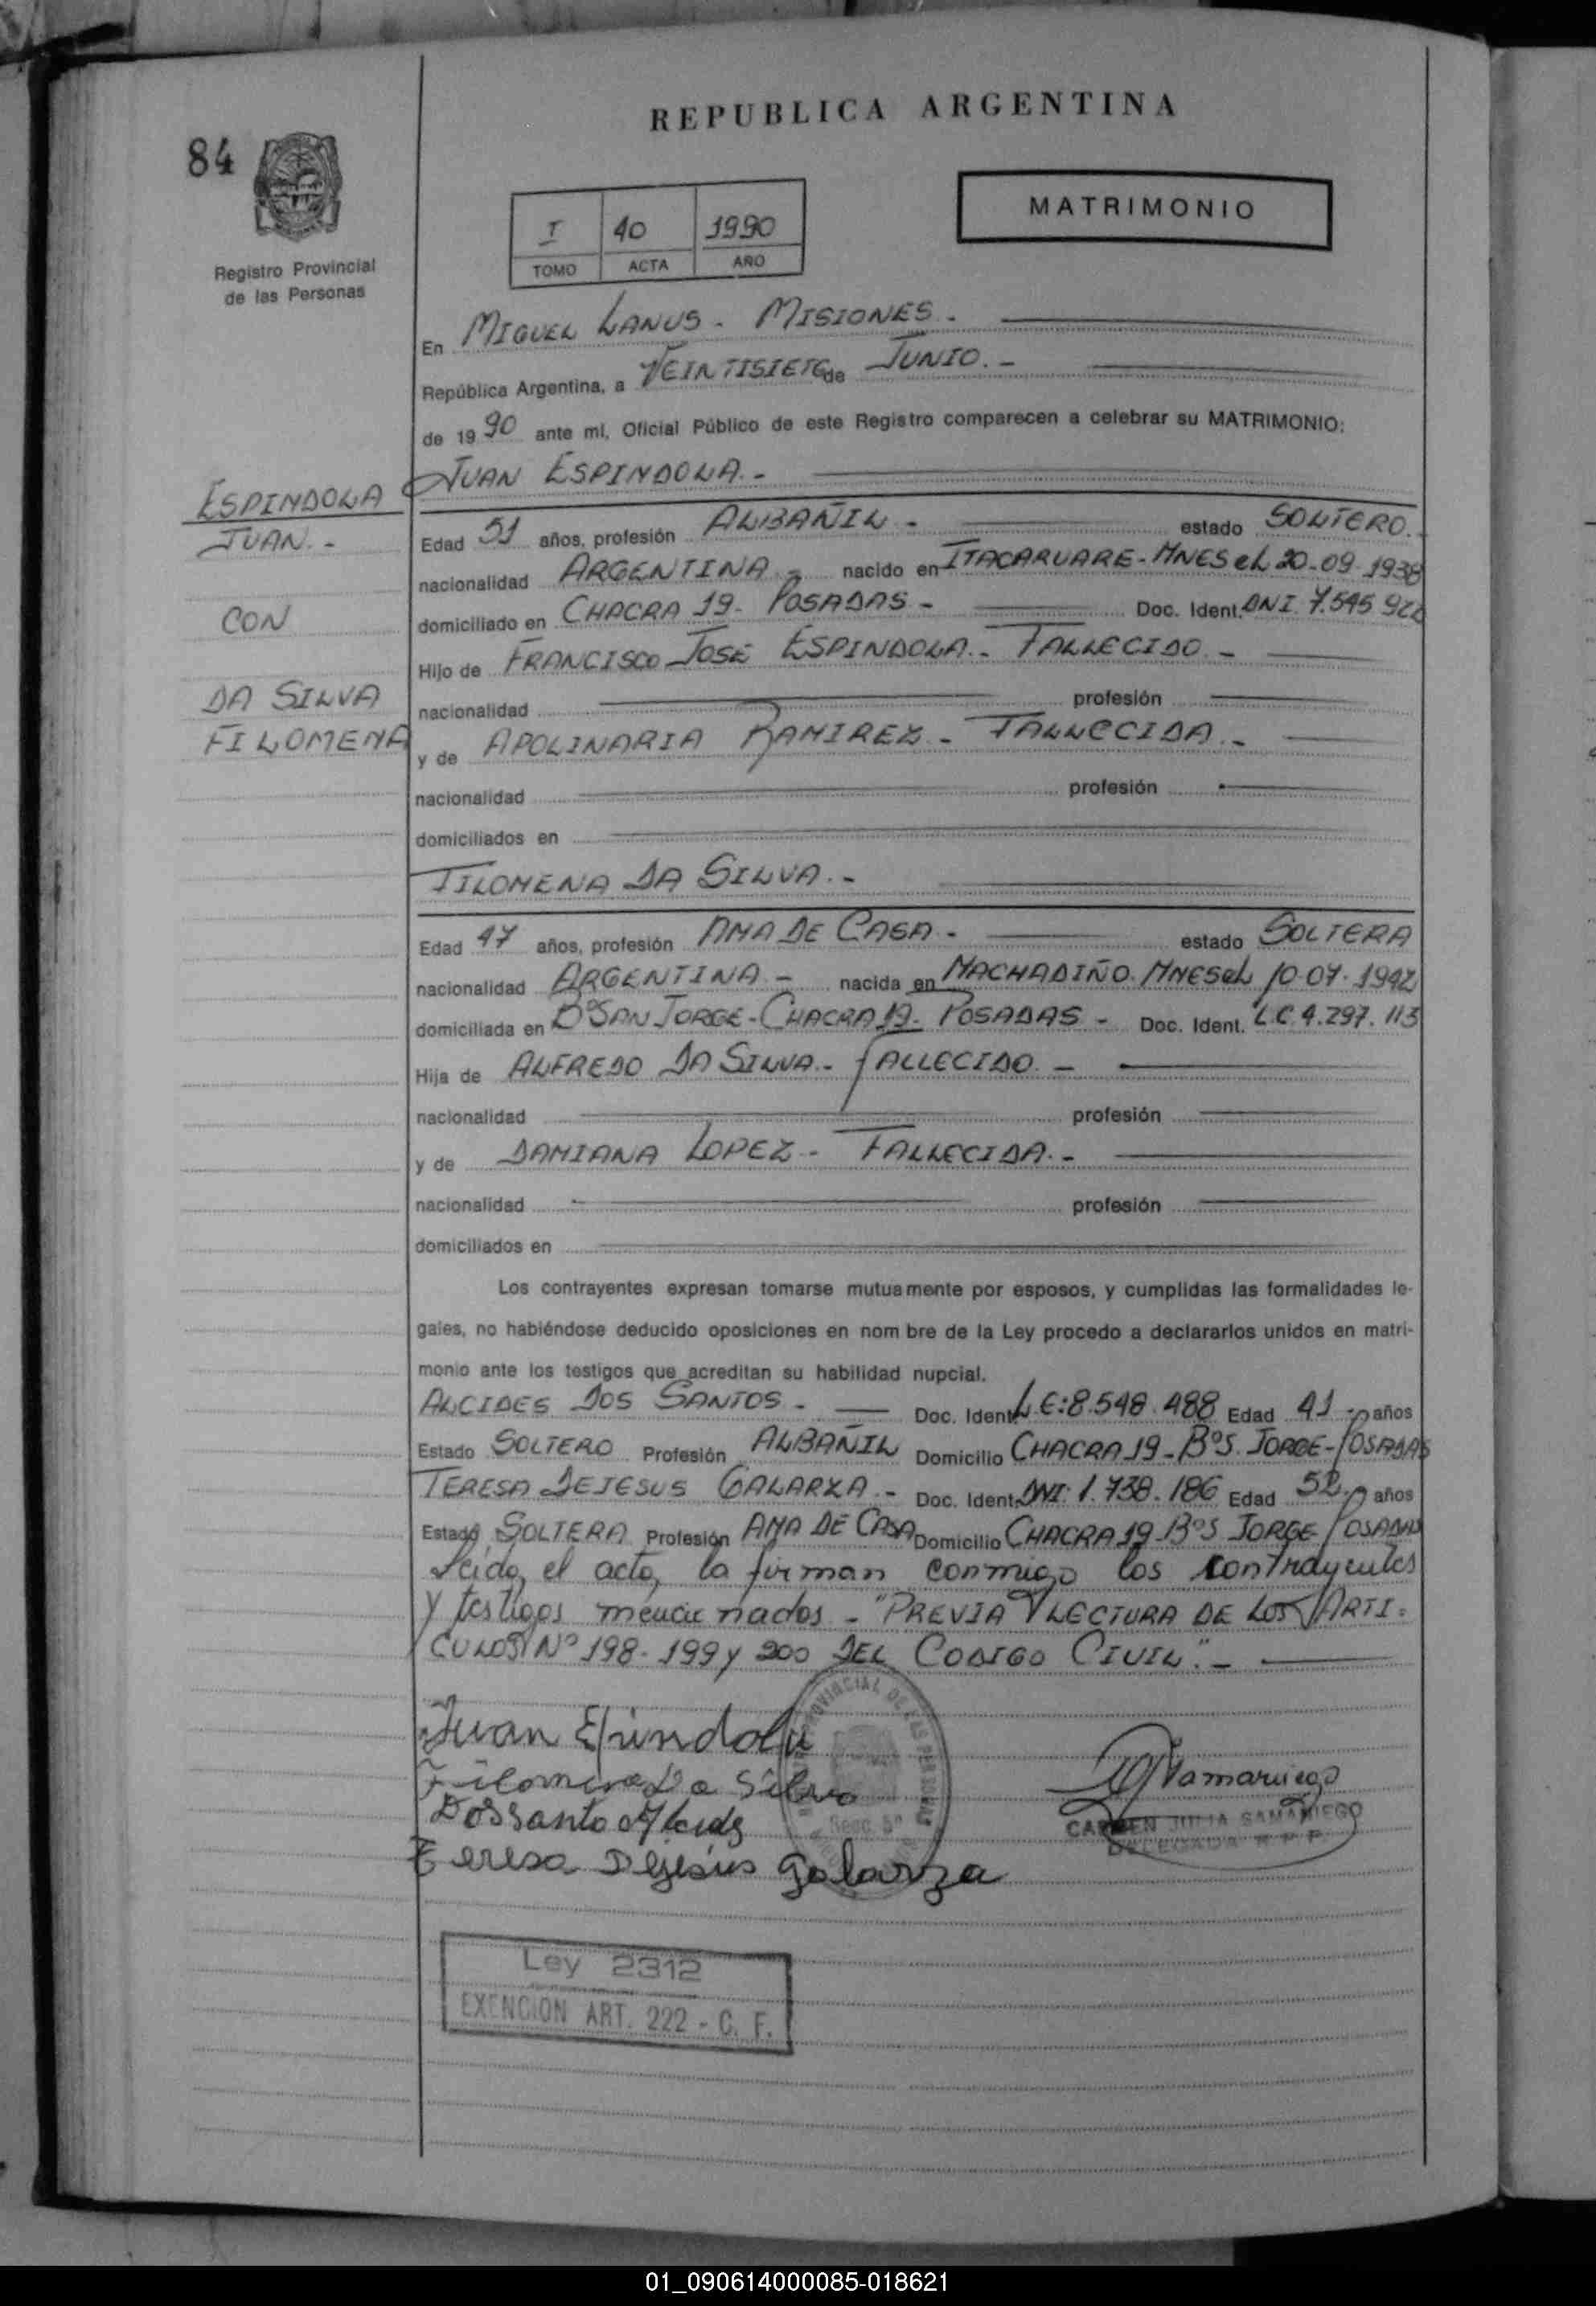 REPUBLICA ARGENTINA
84
MATRIMONIO
I 40 1990
TOMO ACTA AÑO
Registro Provincial
de las Personas
En MIGUEL LANUS - MISIONES.
República Argentina, a VEINTISIETE de JUNIO.-
de 1990 ante mí, Oficial Público de este Registro comparecen a celebrar su MATRIMONIO:
JUAN ESPINDOLA.-
ESPINDOLA
JUAN.-
CON
DA SILVA
FILOMENA
Edad 51 años, profesión ALBAÑIL - estado SOLTERO.
nacionalidad ARGENTINA - nacido en ITACARUARE - MNES el 20-09-1938
domiciliado en CHACRA 19 - POSADAS - Doc. Ident. DNI 7.545.922
Hijo de FRANCISCO JOSÉ ESPINDOLA.- FALLECIDO.-
nacionalidad profesión
y de APOLINARIA RAMIREZ - FALLECIDA.-
nacionalidad profesión
domiciliados en
FILOMENA DA SILVA.-
Edad 47 años, profesión AMA DE CASA - estado SOLTERA
nacionalidad ARGENTINA - nacida en MACHADIÑO. MNES el 10-07-1942
domiciliada en Bº SAN JORGE - CHACRA 19 - POSADAS - Doc. Ident. L.C 4.297.113
Hija de ALFREDO DA SILVA.- FALLECIDO.-
nacionalidad profesión
y de DAMIANA LOPEZ - FALLECIDA.-
nacionalidad profesión
domiciliados en
Los contrayentes expresan tomarse mutuamente por esposos, y cumplidas las formalidades le-
gales, no habiéndose deducido oposiciones en nom bre de la Ley procedo a declararlos unidos en matri-
monio ante los testigos que acreditan su habilidad nupcial.
ALCIDES DOS SANTOS - Doc. Ident. L.E: 8.548.488 Edad 41 años
Estado SOLTERO Profesión ALBAÑIL Domicilio CHACRA 19 - Bº S. JORGE - POSADAS
TERESA DEJESUS GALARZA.- Doc. Ident. DNI: 1.738.186 Edad 52 años
Estado SOLTERA Profesión AMA DE CASA Domicilio CHACRA 19 - Bº S JORGE POSADAS
Leida, el acta, la firman conmigo los contrayentes
y testigos mencionados - "PREVIA LECTURA DE LOS ARTI-
CULOS Nº 198 - 199 y 200 DEL CODIGO CIVIL."-
Juan Espindola
Filomena Da Silva
Dossanto Alcides
Teresa Dejesús galarza
Samaniego
CARMEN JULIA SAMANIEGO
DELEGADA R P P
Ley 2312
EXENCION ART. 222 - C. F.
01_090614000085-018621